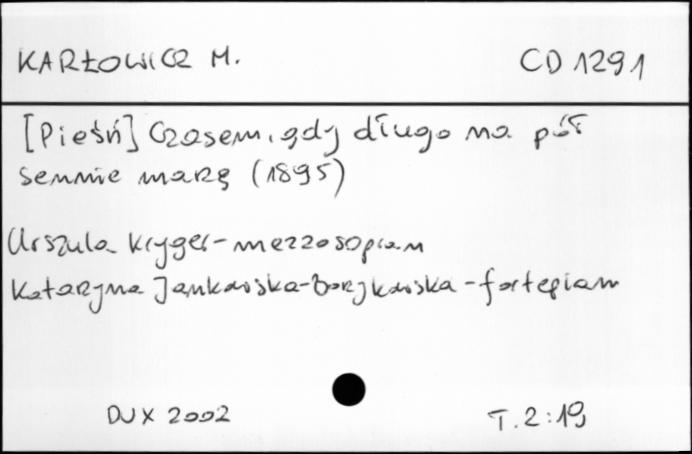 KARŁOWICZ M. CD 1291
[Pieśń] Czasem, gdy długo na pół
sennie marzę (1895)
Urszula Kryger - mezzosopran
Katarzyna Jankowska-Borzykowska - fortepian
DUX 2002 T. 2:19